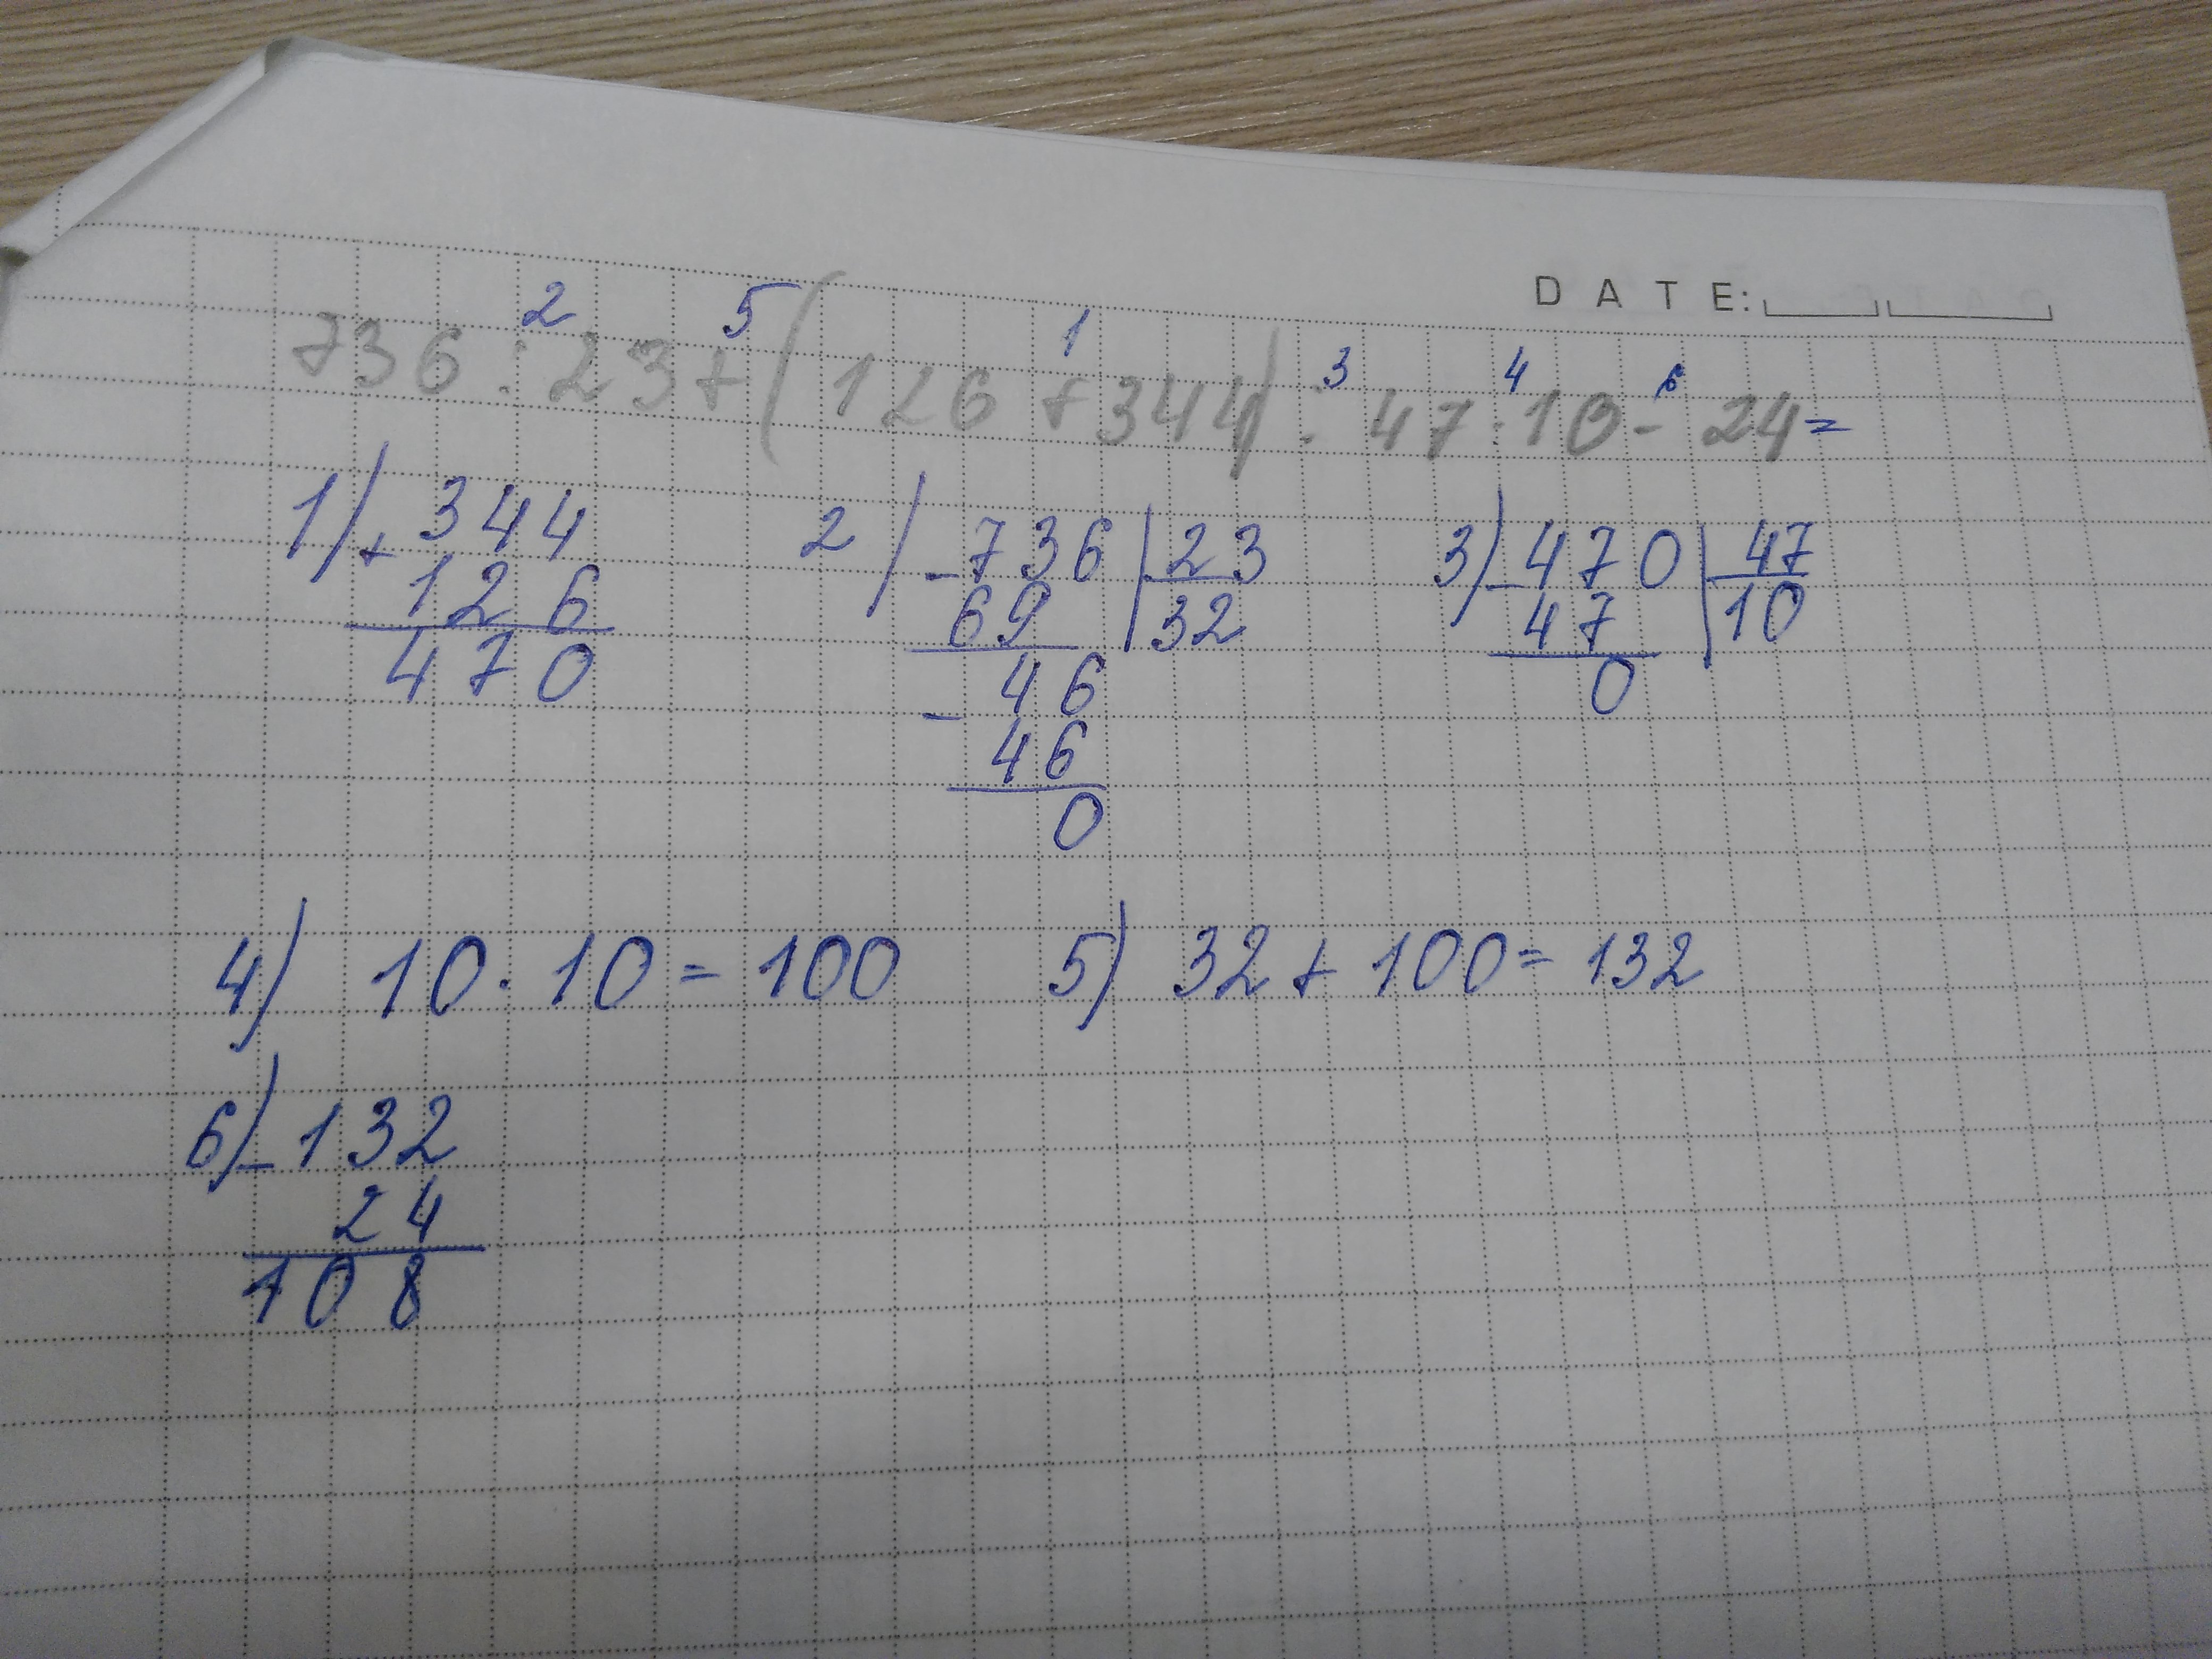 DATE:
2 5 1 3 4 6
736 : 23 + (126 + 344) : 47 · 10 - 24 =
1) + 344
126
470
2) - 736 | 23
69 | 32
- 46
46
0
3) - 470 | 47
47 | 10
0
4) 10 · 10 = 100
5) 32 + 100 = 132
6) - 132
24
108